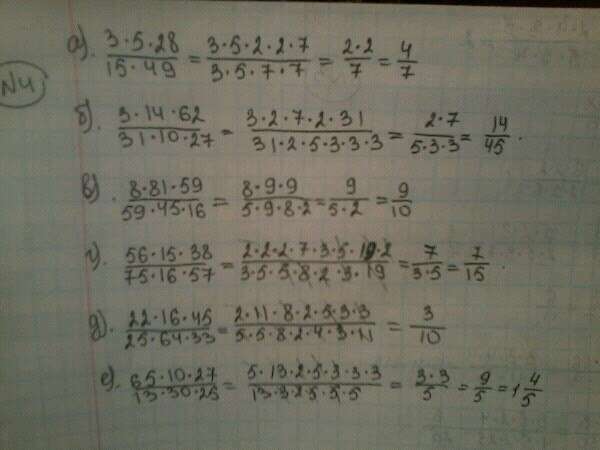 N4
а). 3·5·28/15·49 = 3·5·2·2·7/3·5·7·7 = 2·2/7 = 4/7
б). 3·14·62/31·10·27 = 3·2·7·2·31/31·2·5·3·3·3 = 2·7/5·3·3 = 14/45.
в). 8·81·59/59·45·16 = 8·9·9/5·9·8·2 = 9/5·2 = 9/10
г). 56·15·38/75·16·57 = 2·2·2·7·3·5·19·2/3·5·5·8·2·3·19 = 7/3·5 = 7/15.
д). 22·16·45/25·64·33 = 2·11·8·2·5·3·3/5·5·8·2·4·3·11 = 3/10
е). 65·10·27/13·30·25 = 5·13·2·5·3·3·3/13·3·2·5·5·5 = 3·3/5 = 9/5 = 1 4/5